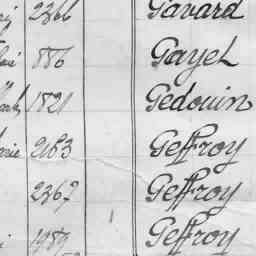 2366 Gavard
886 Gayel
1821 Gedouin
2163 Geffroy
2367 Geffroy
1989 Geffroy